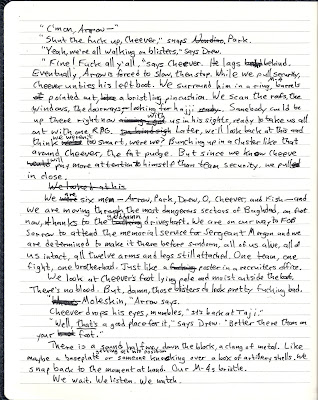 "C'mon, Arrow—"
"Shut the fuck up, Cheever," snaps Park.
"Yeah, we're all walking on blisters," says Drew.
"Fine! Fuck all y'all," says Cheever. He lags behind.
Eventually, Arrow is forced to slow, then stop. While we pull security,
Cheever unties his left boot. We surround him in a ring, M-4 barrels
pointed out, a bristling pincushion. We scan the roofs, the
windows, the doorways—looking for hajji. Somebody could be
up there right now with us in his sights, ready to take us all
out with one RPG. Later, we'll look back at this and
think we weren't too smart, were we? Bunching up in a cluster like that
around Cheever, the fat pudge. But since we know Cheever
will pay more attention to himself than security, we pulled
in close.
We looked at his
We are six men—Arrow, Park, Drew, O, Cheever, and Fish—and
we are moving through the most dangerous sectors of Baghdad, on foot
now, thanks to the riverboat. We are on our way to FOB
Sorrow to attend the memorial service for Sergeant Morgan and we
are determined to make it there before sundown, all of us alive, all of
us intact, all twelve arms and legs still attached. One team, one
fight, one brotherhood. Just like a poster in a recruiter's office.
We look at Cheever's foot lying pale and moist outside the boot.
There's no blood. But, damn, those blisters do look pretty fucking bad.
"Moleskin," Arrow says.
Cheever drops his eyes, mumbles, "It's back at Taji."
"Well, that's a good place for it," says Drew. "Better there than on
your foot."
There is a sound halfway down the block, a clang of metal. Like
maybe a baseplate getting set into position or someone knocking over a box of artillery shells. We
snap back to the moment at hand. Our M-4s bristle.
We wait. We listen. We watch.